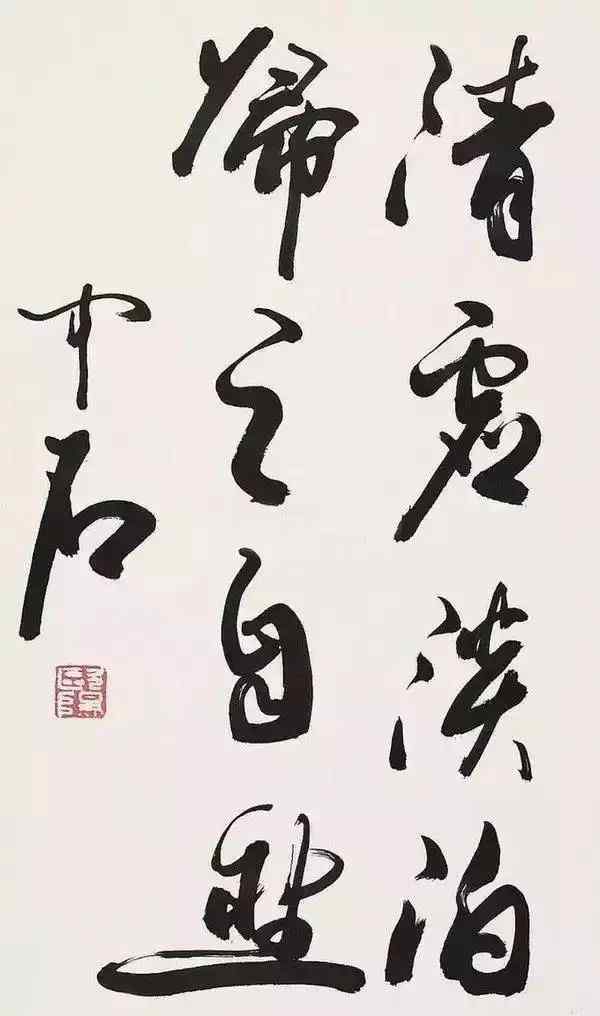 清虚淡泊
歸之自然
中石